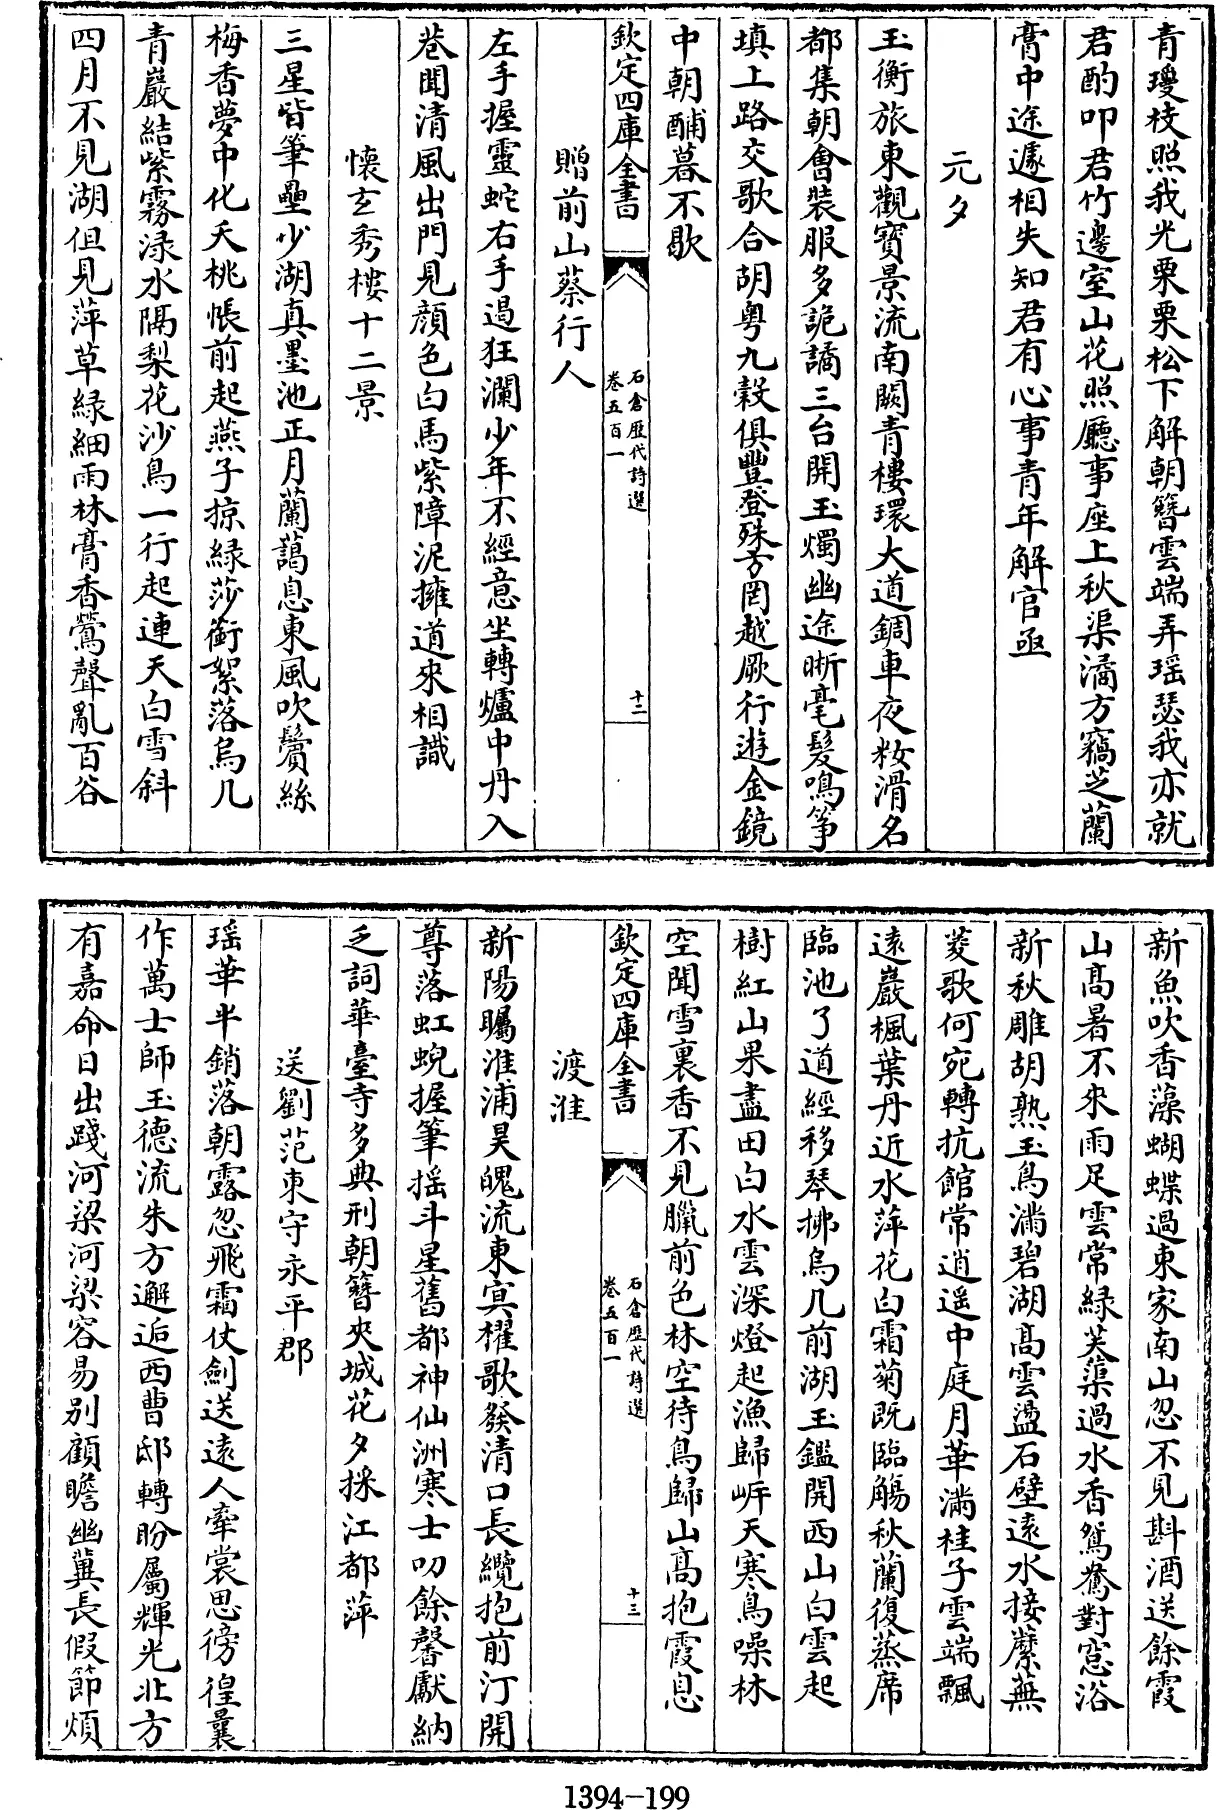 青瓊枝照我光栗栗松下解朝簪雲端弄瑶瑟我亦就
君酌叩君竹邊室山花照廳事座上秋渠潏方竊芝蘭
膏中途遽相失知君有心事青年解官亟
元夕
玉衡旅東觀寳景流南闕青樓環大道錭車夜粧滑名
都集朝會裝服多詭譎三台開玉燭幽途晰毫髮鳴箏
填上路交歌合胡粤九榖俱豐登殊方罔越厥行遊金鏡
中朝酺暮不歇
欽定四庫全書
石倉歷代詩選
卷五百一
十二
贈前山蔡行人
左手握靈蛇右手過狂瀾少年不經意坐轉爐中丹入
巷聞清風出門見顔色白馬紫障泥擁道來相識
懷玄秀樓十二景
三星皆筆壘少湖真墨池正月蘭藹息東風吹鬢絲
梅香夢中化夭桃悵前起燕子掠緑莎銜絮落烏几
青巖結紫霧渌水隔梨花沙鳥一行起連天白雪斜
四月不見湖但見萍草緑細雨林膏香鶯聲亂百谷
新魚吹香藻蝴蝶過東家南山忽不見斟酒送餘霞
山髙暑不來雨足雲常緑芙蕖過水香鴛鴦對窓浴
新秋雕胡熟玉鳥滿碧湖髙雲盪石壁逺水接蘪蕪
菱歌何宛轉抗館常逍遥中庭月華滿桂子雲端飄
逺巖楓葉丹近水萍花白霜菊既臨觴秋蘭復蒸席
臨池了道經移琴拂烏几前湖玉鑑開西山白雲起
樹紅山果盡田白水雲深燈起漁歸岸天寒鳥噪林
空聞雪裏香不見臘前色林空待鳥歸山髙抱霞息
欽定四庫全書
石倉歷代詩選
卷五百一
十三
渡淮
新陽矚淮浦昊魄流東㝠櫂歌發清口長纜抱前汀開
尊落虹蜺握筆揺斗星舊都神仙洲寒士叨餘馨獻納
乏詞華臺寺多典刑朝簪夾城花夕採江都萍
送劉范東守永平郡
瑶華半銷落朝露忽飛霜仗劍送逺人牽裳思徬徨曩
作萬士師玉德流朱方邂逅西曹邸轉盼屬輝光北方
有嘉命日出踐河梁河梁容易别顧瞻幽冀長假節煩
1394—199